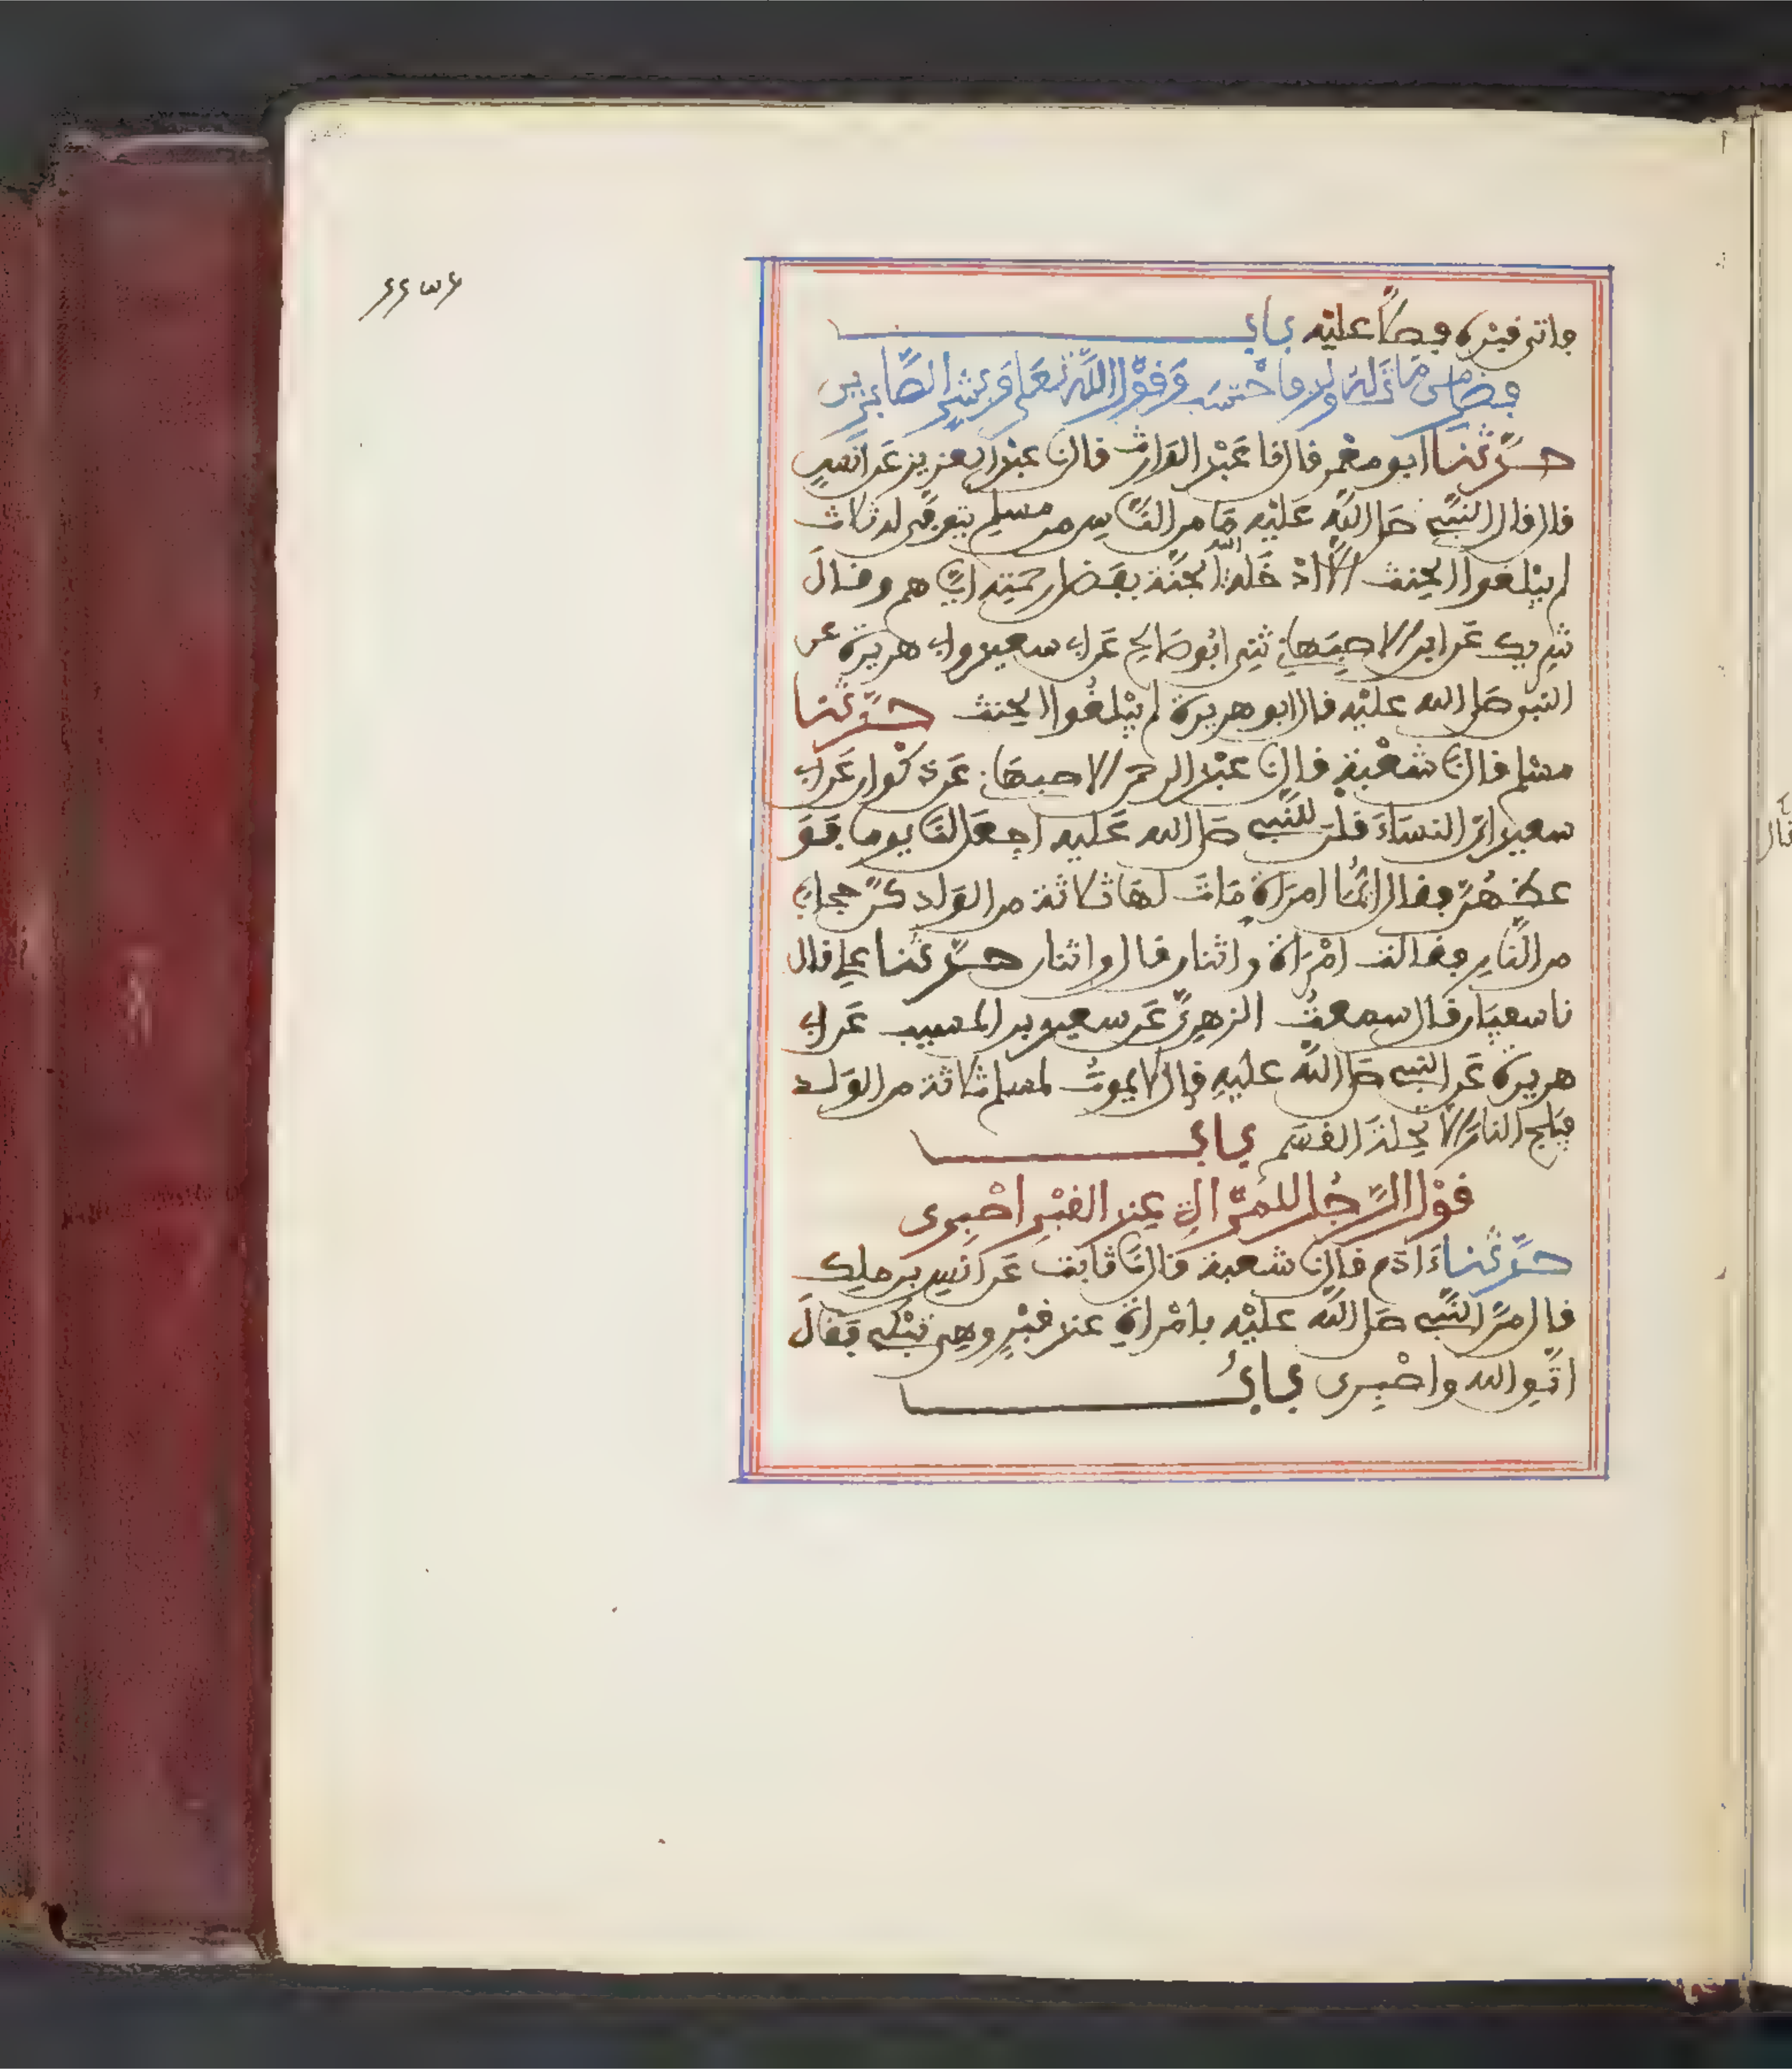 فاتى قبره فصلى عليه باب
فضل من مات له ولد فاحتسب وقول الله تعلى وبشر الصابرين
حدثنا ابو معمر قال نا عبد الوارث قال نا عبد العزيز عن انس
قال قال النبي صلى الله عليه ما من الناس من مسلم يتوفى له ثلاث
لم يبلغوا الحنث الا ادخله الله الجنة بفضل رحمته اياهم وقال
شريك عن ابن الاصبهاني ثني ابو صالح عن ابي سعيد وابي هريرة عن
النبي صلى الله عليه قال ابو هريرة لم يبلغوا الحنث حدثنا
مسلم قال نا شعبة قال نا عبد الرحمن الاصبهاني عن ذكوان عن ابي
سعيد ان النساء قلن للنبي صلى الله عليه اجعل لنا يوما فو
عظهن فقال ايما امراة مات لها ثلاثة من الولد كن حجابا
من النار فقالت امراة واثنان قال واثنان حدثنا علي قال
نا سفيان قال سمعت الزهري عن سعيد بن المسيب عن ابي
هريرة عن النبي صلى الله عليه قال لا يموت لمسلم ثلاثة من الولد
فيلج النار الا تحلة القسم باب
قول الرجل للمراة عند القبر اصبرى
حدثنا ءادم قال نا شعبة قال نا ثابت عن انس بن ملك
قال مر النبي صلى الله عليه بامراة عند قبر وهي تبكي فقال
اتقي الله واصبرى باب